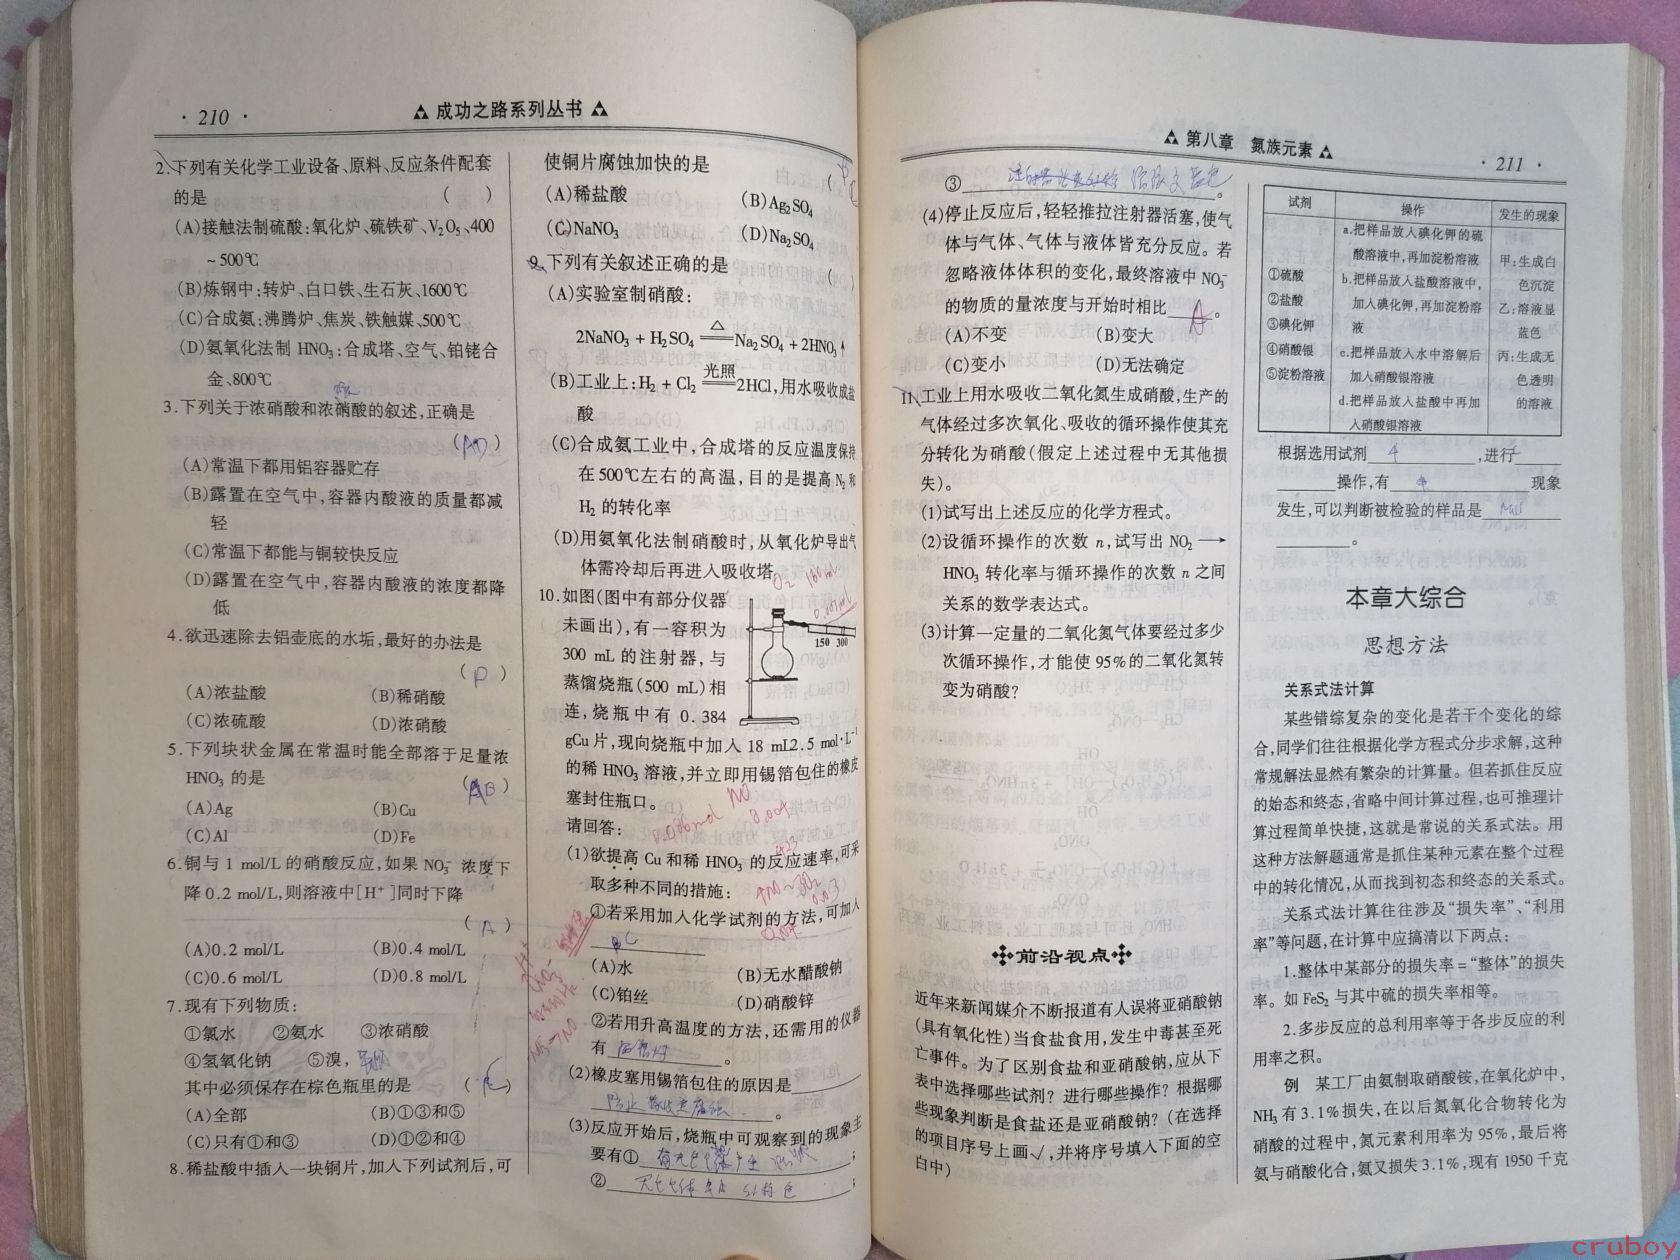 · 210 ·
成功之路系列丛书
2.下列有关化学工业设备、原料、反应条件配套
的是 ( )
(A)接触法制硫酸:氧化炉、硫铁矿、V₂O₅、400
~500℃
(B)炼钢中:转炉、白口铁、生石灰、1600℃
(C)合成氨:沸腾炉、焦炭、铁触媒、500℃
(D)氨氧化法制 HNO₃:合成塔、空气、铂铑合
金、800℃
3.下列关于浓硝酸和浓硝酸的叙述,正确是
(AD)
(A)常温下都用铝容器贮存
(B)露置在空气中,容器内酸液的质量都减
轻
(C)常温下都能与铜较快反应
(D)露置在空气中,容器内酸液的浓度都降
低
4.欲迅速除去铝壶底的水垢,最好的办法是
(D)
(A)浓盐酸 (B)稀硝酸
(C)浓硫酸 (D)浓硝酸
5.下列块状金属在常温时能全部溶于足量浓
HNO₃ 的是 (AB)
(A)Ag (B)Cu
(C)Al (D)Fe
6.铜与 1 mol/L 的硝酸反应,如果 NO₃⁻ 浓度下
降 0.2 mol/L,则溶液中[H⁺]同时下降
(A)
(A)0.2 mol/L (B)0.4 mol/L
(C)0.6 mol/L (D)0.8 mol/L
7.现有下列物质:
①氯水 ②氨水 ③浓硝酸
④氢氧化钠 ⑤溴,
其中必须保存在棕色瓶里的是 ( )
(A)全部 (B)①③和⑤
(C)只有①和③ (D)①②和④
8.稀盐酸中插入一块铜片,加入下列试剂后,可
使铜片腐蚀加快的是 (
(A)稀盐酸 (B)Ag₂SO₄
(C)NaNO₃ (D)Na₂SO₄
9.下列有关叙述正确的是 (
(A)实验室制硝酸:
2NaNO₃ + H₂SO₄ ══△══ Na₂SO₄ + 2HNO₃↑
(B)工业上:H₂ + Cl₂ ══光照══ 2HCl,用水吸收成盐
酸
(C)合成氨工业中,合成塔的反应温度保持
在 500℃左右的高温,目的是提高 N₂ 和
H₂ 的转化率
(D)用氨氧化法制硝酸时,从氧化炉导出气
体需冷却后再进入吸收塔
10.如图(图中有部分仪器
未画出),有一容积为
300 mL 的注射器,与
蒸馏烧瓶(500 mL)相
连,烧瓶中有 0.384
150 300
gCu 片,现向烧瓶中加入 18 mL2.5 mol·L⁻¹
的稀 HNO₃ 溶液,并立即用锡箔包住的橡皮
塞封住瓶口。
NO
请回答:
(1)欲提高 Cu 和稀 HNO₃ 的反应速率,可采
取多种不同的措施:
①若采用加入化学试剂的方法,可加入
(A)水 (B)无水醋酸钠
(C)铂丝 (D)硝酸锌
②若用升高温度的方法,还需用的仪器
有 酒精灯 。
(2)橡皮塞用锡箔包住的原因是
防止橡皮塞腐蚀 。
(3)反应开始后,烧瓶中可观察到的现象主
要有① ;
② ;
第八章 氮族元素
· 211 ·
③ 。
(4)停止反应后,轻轻推拉注射器活塞,使气
体与气体、气体与液体皆充分反应。若
忽略液体体积的变化,最终溶液中 NO₃⁻
的物质的量浓度与开始时相比 A 。
(A)不变 (B)变大
(C)变小 (D)无法确定
11.工业上用水吸收二氧化氮生成硝酸,生产的
气体经过多次氧化、吸收的循环操作使其充
分转化为硝酸(假定上述过程中无其他损
失)。
(1)试写出上述反应的化学方程式。
(2)设循环操作的次数 n,试写出 NO₂ ⟶
HNO₃ 转化率与循环操作的次数 n 之间
关系的数学表达式。
(3)计算一定量的二氧化氮气体要经过多少
次循环操作,才能使 95% 的二氧化氮转
变为硝酸?
前沿视点
近年来新闻媒介不断报道有人误将亚硝酸钠
(具有氧化性)当食盐食用,发生中毒甚至死
亡事件。为了区别食盐和亚硝酸钠,应从下
表中选择哪些试剂? 进行哪些操作? 根据哪
些现象判断是食盐还是亚硝酸钠? (在选择
的项目序号上画√,并将序号填入下面的空
白中)
试剂 操作 发生的现象
①硫酸
②盐酸
③碘化钾
④硝酸银
⑤淀粉溶液
a.把样品放入碘化钾的硫
酸溶液中,再加淀粉溶液
b.把样品放入硫酸溶液中,
加入碘化钾,再加淀粉溶
液
c.把样品放入水中溶解后
加入硝酸银溶液
d.把样品放入盐酸中再加
入硝酸银溶液
甲:生成白
色沉淀
乙:溶液显
蓝色
丙:生成无
色透明
的溶液
根据选用试剂 4 ,进行
操作,有 现象
发生,可以判断被检验的样品是
。
本章大综合
思想方法
关系式法计算
某些错综复杂的变化是若干个变化的综
合,同学们往往根据化学方程式分步求解,这种
常规解法显然有繁杂的计算量。但若抓住反应
的始态和终态,省略中间计算过程,也可推理计
算过程简单快捷,这就是常说的关系式法。用
这种方法解题通常是抓住某种元素在整个过程
中的转化情况,从而找到初态和终态的关系式。
关系式法计算往往涉及“损失率”、“利用
率”等问题,在计算中应搞清以下两点:
1.整体中某部分的损失率=“整体”的损失
率。如 FeS₂ 与其中硫的损失率相等。
2.多步反应的总利用率等于各步反应的利
用率之积。
例 某工厂由氨制取硝酸铵,在氧化炉中,
NH₃ 有 3.1% 损失,在以后氮氧化合物转化为
硝酸的过程中,氮元素利用率为 95%,最后将
氨与硝酸化合,氨又损失 3.1%,现有 1950 千克
cruboy